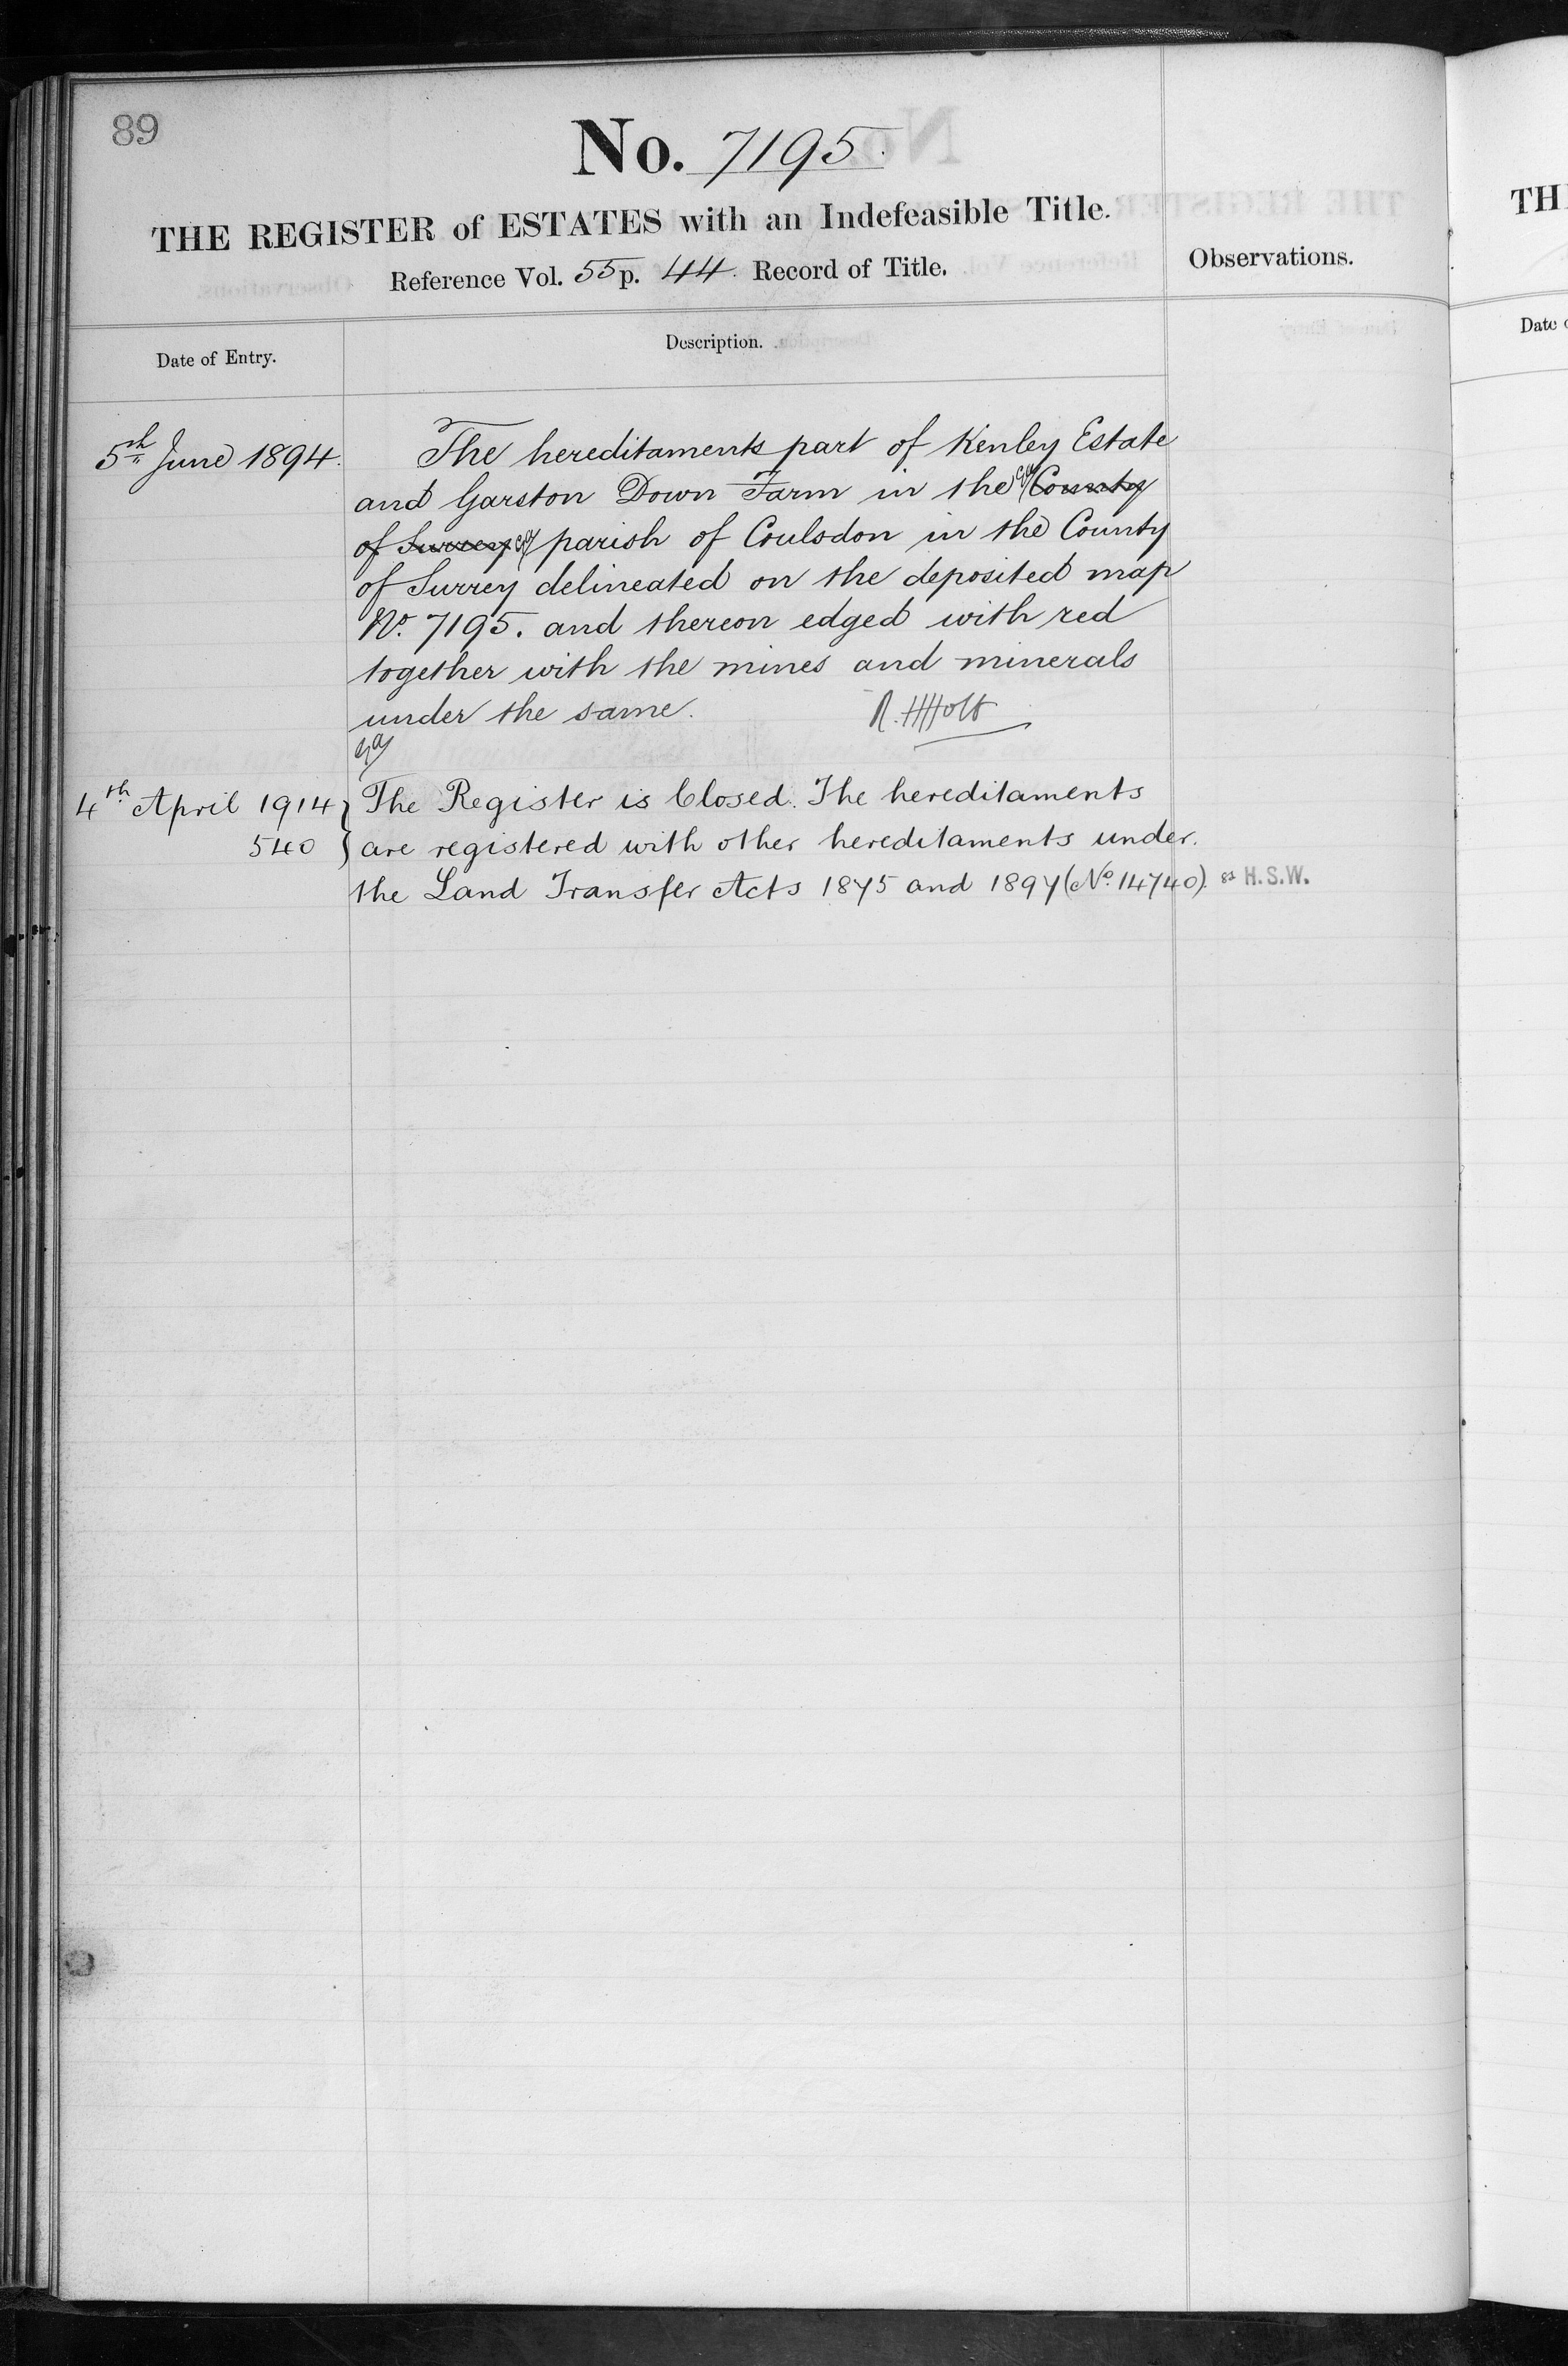 89
No. 7195.
THE REGISTER of ESTATES with an Indefeasible Title.
Reference Vol. 55 p. 44. Record of Title.
Observations.
Date of Entry.
Description.
5th June 1894.
The hereditaments part of Kenley Estate
and Garston Down Farm in the County
of Surrey parish of Coulsdon in the County
of Surrey delineated on the deposited map
No. 7195. and thereon edged with red
together with the mines and minerals
under the same. R. H Holt
4th April 1914 } The Register is Closed. The hereditaments
540 } are registered with other hereditaments under.
the Land Transfer Acts 1875 and 1897 (No. 14740). H.S.W.
TH
Date